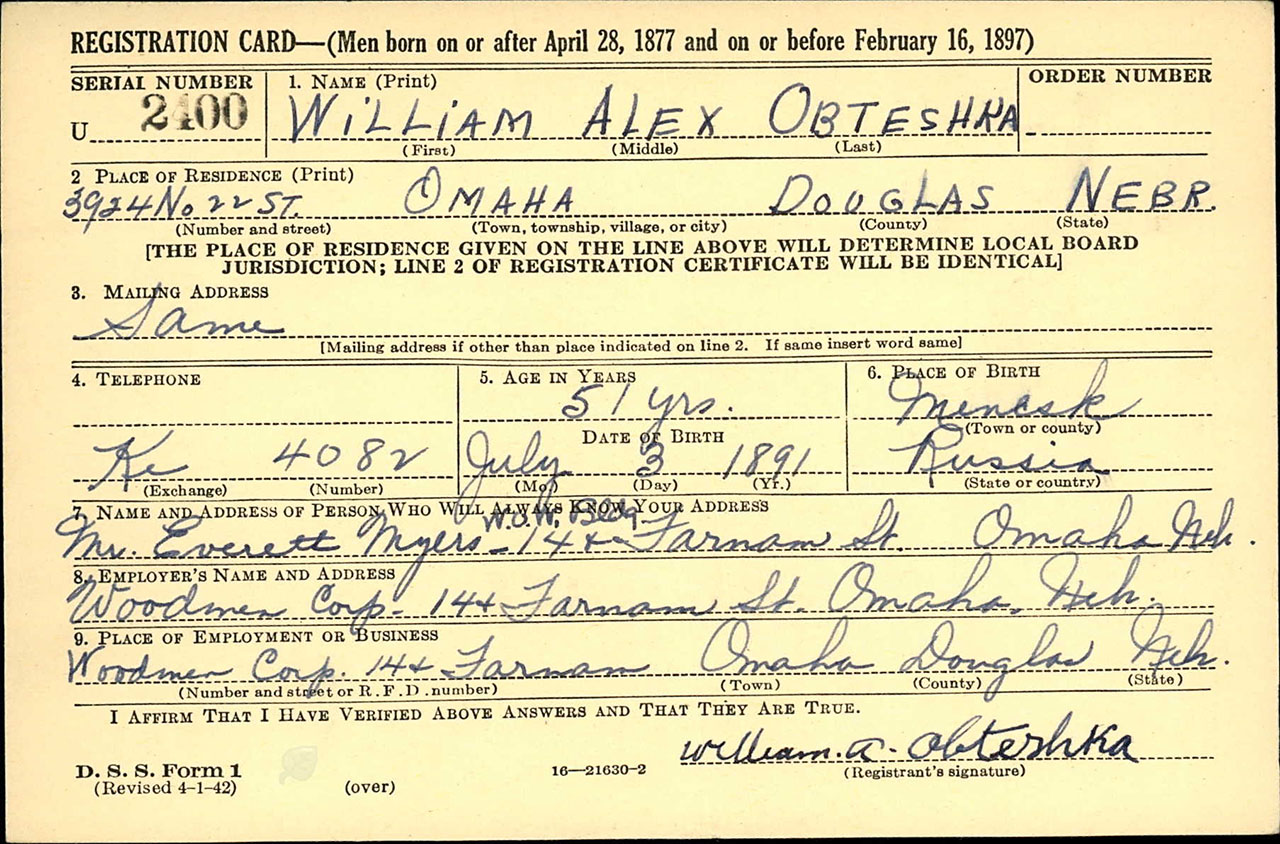 REGISTRATION CARD—(Men born on or after April 28, 1877 and on or before February 16, 1897)
SERIAL NUMBER 1. NAME (Print) ORDER NUMBER
U 2400 WILLIAM ALEX OBTESHKA
(First) (Middle) (Last)
2 PLACE OF RESIDENCE (Print)
3924 No 22 ST. OMAHA DOUGLAS NEBR.
(Number and street) (Town, township, village, or city) (County) (State)
[THE PLACE OF RESIDENCE GIVEN ON THE LINE ABOVE WILL DETERMINE LOCAL BOARD
JURISDICTION; LINE 2 OF REGISTRATION CERTIFICATE WILL BE IDENTICAL]
3. MAILING ADDRESS
Same
[Mailing address if other than place indicated on line 2. If same insert word same]
4. TELEPHONE 5. AGE IN YEARS 6. PLACE OF BIRTH
51 yrs. Mencsk
DATE OF BIRTH (Town or county)
Ke 4082 July 3 1891 Russia
(Exchange) (Number) (Mo.) (Day) (Yr.) (State or country)
7. NAME AND ADDRESS OF PERSON WHO WILL ALWAYS KNOW YOUR ADDRESS
W.O.W. Bldg.
Mr. Everett Myers - 14 + Farnam St. Omaha Neb.
8. EMPLOYER'S NAME AND ADDRESS
Woodmen Corp. 14 + Farnam St. Omaha, Neb.
9. PLACE OF EMPLOYMENT OR BUSINESS
Woodmen Corp. 14 + Farnam Omaha Douglas Neb.
(Number and street or R. F. D. number) (Town) (County) (State)
I AFFIRM THAT I HAVE VERIFIED ABOVE ANSWERS AND THAT THEY ARE TRUE.
William. A. Obteshka
D. S. S. Form 1 16—21630-2 (Registrant's signature)
(Revised 4-1-42) (over)